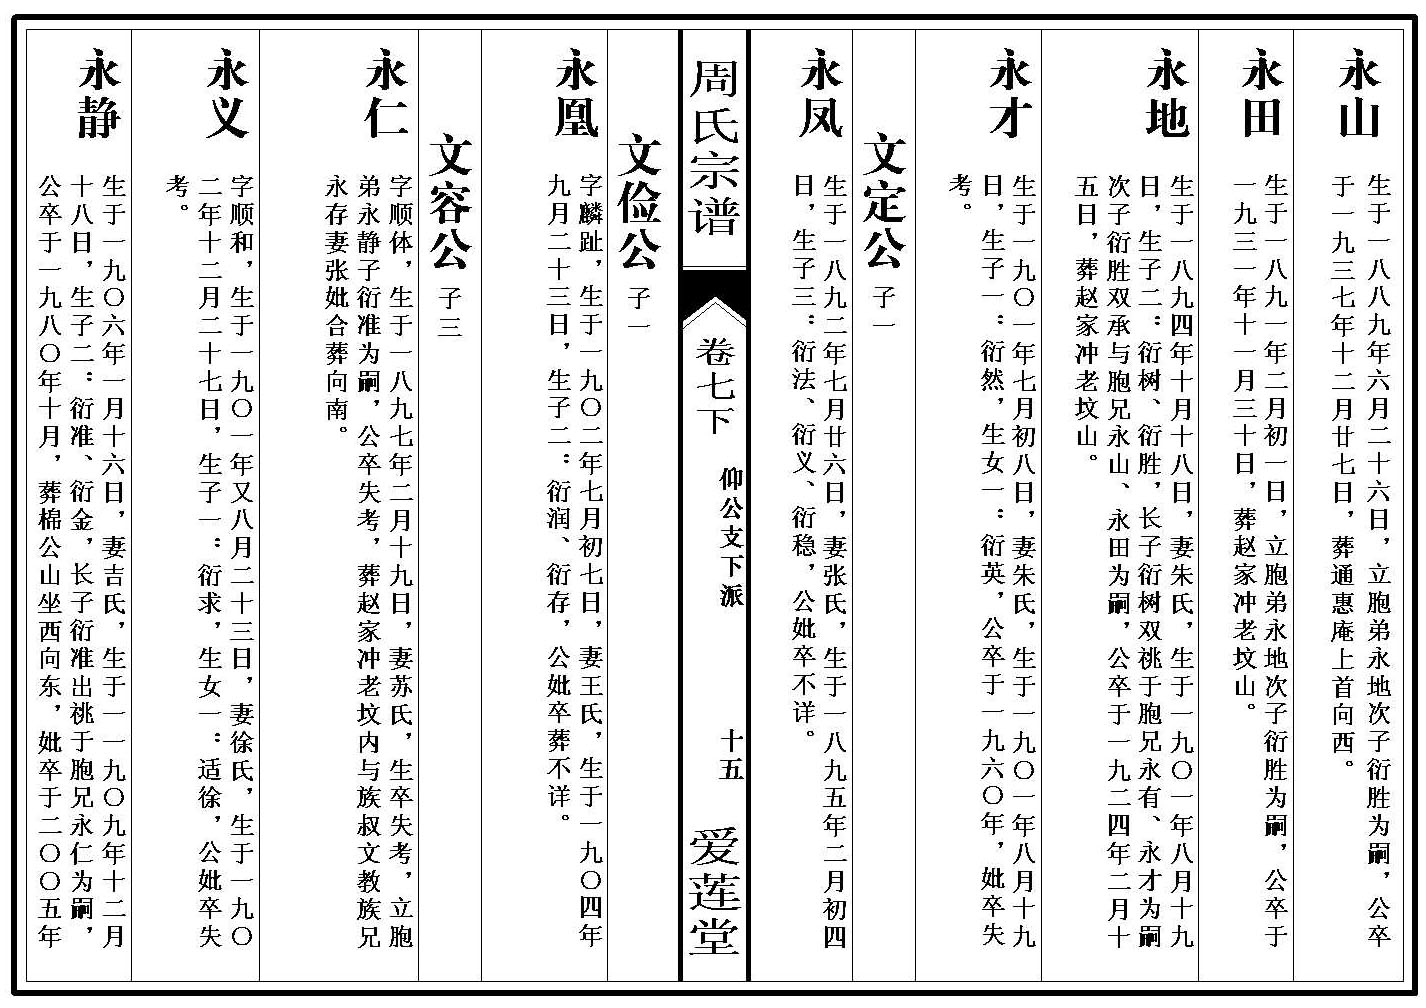 永山
生于一八八九年六月二十六日，立胞弟永地次子衍胜为嗣，公卒
于一九三七年十二月廿七日，葬通惠庵上首向西。
永田
生于一八九一年二月初一日，立胞弟永地次子衍胜为嗣，公卒于
一九三一年十一月三十日，葬赵家冲老坟山。
永地
生于一八九四年十月十八日，妻朱氏，生于一九〇一年八月十九
日，生子二：衍树、衍胜，长子衍树双祧于胞兄永有、永才为嗣
次子衍胜双承与胞兄永山、永田为嗣，公卒于一九二四年二月十
五日，葬赵家冲老坟山。
永才
生于一九〇一年七月初八日，妻朱氏，生于一九〇一年八月十九
日，生子一：衍然，生女一：衍英，公卒于一九六〇年，妣卒失
考。
文定公 子一
永凤
生于一八九二年七月廿六日，妻张氏，生于一八九五年二月初四
日，生子三：衍法、衍义、衍稳，公妣卒不详。
周氏宗谱
卷七下
仰公支下派
十五
爱莲堂
文俭公 子一
永凰
字麟趾，生于一九〇二年七月初七日，妻王氏，生于一九〇四年
九月二十三日，生子二：衍润、衍存，公妣卒葬不详。
文容公 子三
永仁
字顺体，生于一八九七年二月十九日，妻苏氏，生卒失考，立胞
弟永静子衍准为嗣，公卒失考，葬赵家冲老坟内与族叔文教族兄
永存妻张妣合葬向南。
永义
字顺和，生于一九〇一年又八月二十三日，妻徐氏，生于一九〇
二年十二月二十七日，生子一：衍求，生女一：适徐，公妣卒失
考。
永静
生于一九〇六年一月十六日，妻吉氏，生于一一九〇九年十二月
十八日，生子二：衍准、衍金，长子衍准出祧于胞兄永仁为嗣，
公卒于一九八〇年十月，葬棉公山坐西向东，妣卒于二〇〇五年